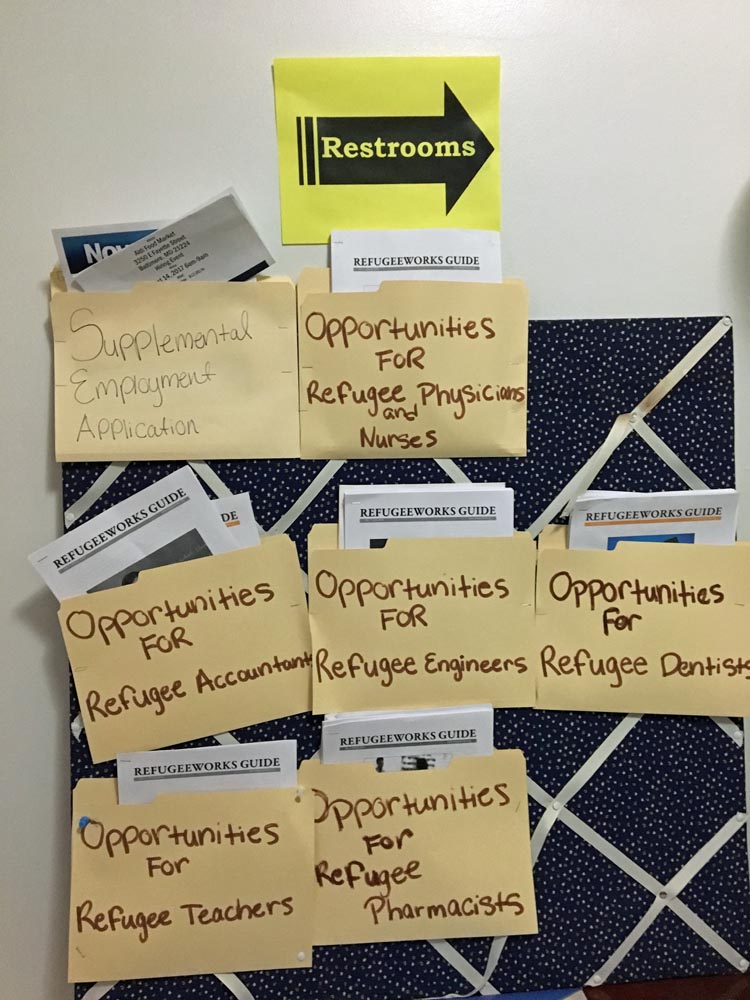 Restrooms
Aldi Food Market
3250 E Fayette Street
Baltimore, MD 21224
Hiring Event
14, 2017 6am-9am
REFUGEEWORKS GUIDE
Supplemental
Employment
Application
Opportunities
FOR
Refugee Physicians
and
Nurses
REFUGEEWORKS GUIDE
DE
REFUGEEWORKS GUIDE
REFUGEEWORKS GUIDE
Opportunities
FOR
Refugee Accountants
Opportunities
FOR
Refugee Engineers
Opportunities
For
Refugee Dentists
REFUGEEWORKS GUIDE
REFUGEEWORKS GUIDE
Opportunities
For
Refugee Teachers
Opportunities
For
Refugee
Pharmacists